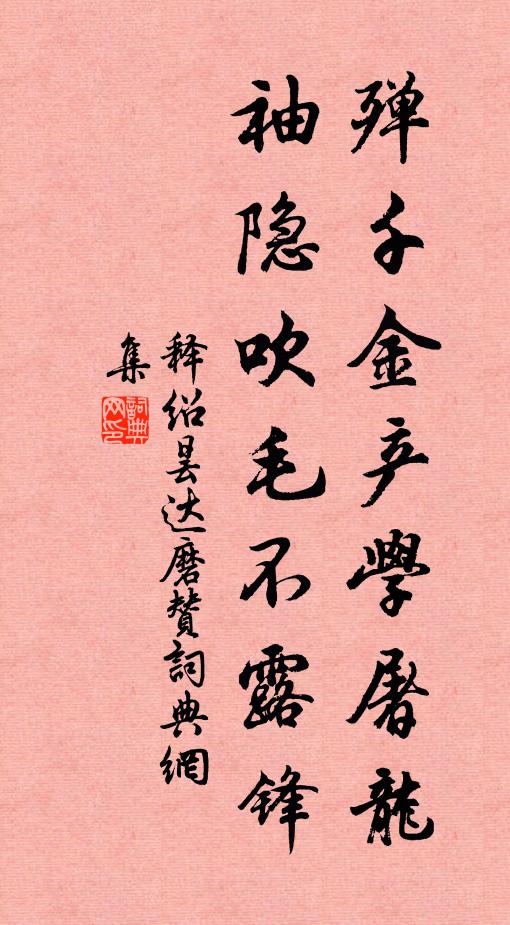 殚千金产学屠龍
袖隐吹毛不露锋
释绍昙达磨赞詞典網
集
詞典
网印